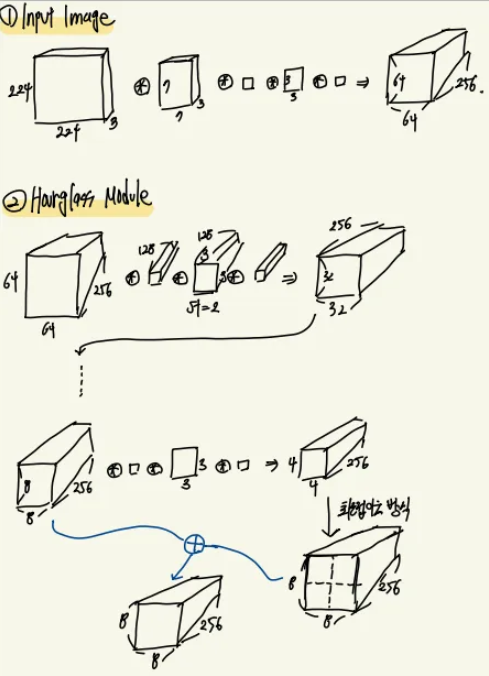 ① Input Image
224 224 3 7 7 3 3 3 ⇒ 64 64 256.
② Hourglass Module
64 64 256 128 128 3 3 st=2 ⇒ 256 32 32
8 8 256 3 3 ⇒ 4 4 256
방식
8 8 256
8 8 256